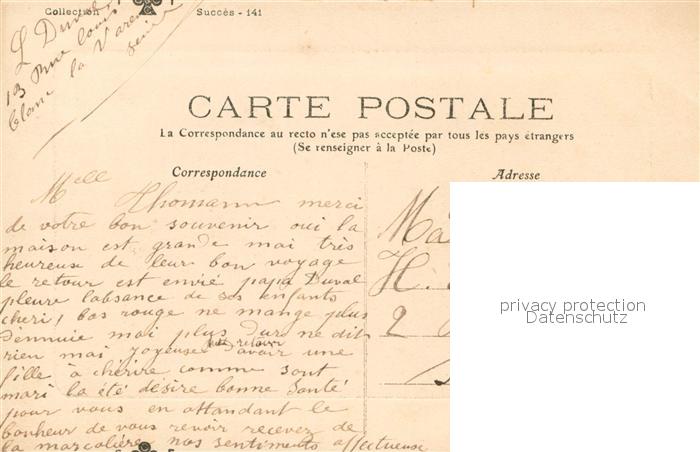 Collection Succès - 141
L Duval
13 Rue Louis
blanc la Varenne
Seine
CARTE POSTALE
La Correspondance au recto n'ese pas acceptée par tous les pays étrangers
(Se renseigner à la Poste)
Correspondance
Adresse
Mell Thomann merci
de votre bon souvenir oui la
maison est grande mai très
heureuse de leur bon voyage
le retour est envié papa Duval
pleure labsance de ses enfants
cheri, bas rouge ne mange plus
d'ennuie mai plus dur ne dit
rien mai joyeuse d'avoir une
retour
fille à chérire comme sont
mari la été désire bonne Santé
pour vous en attandant le
bonheur de vous revoir recevez de
la marcolière nos sentiments affectueuse
Ma
H.
2
privacy protection
Datenschutz